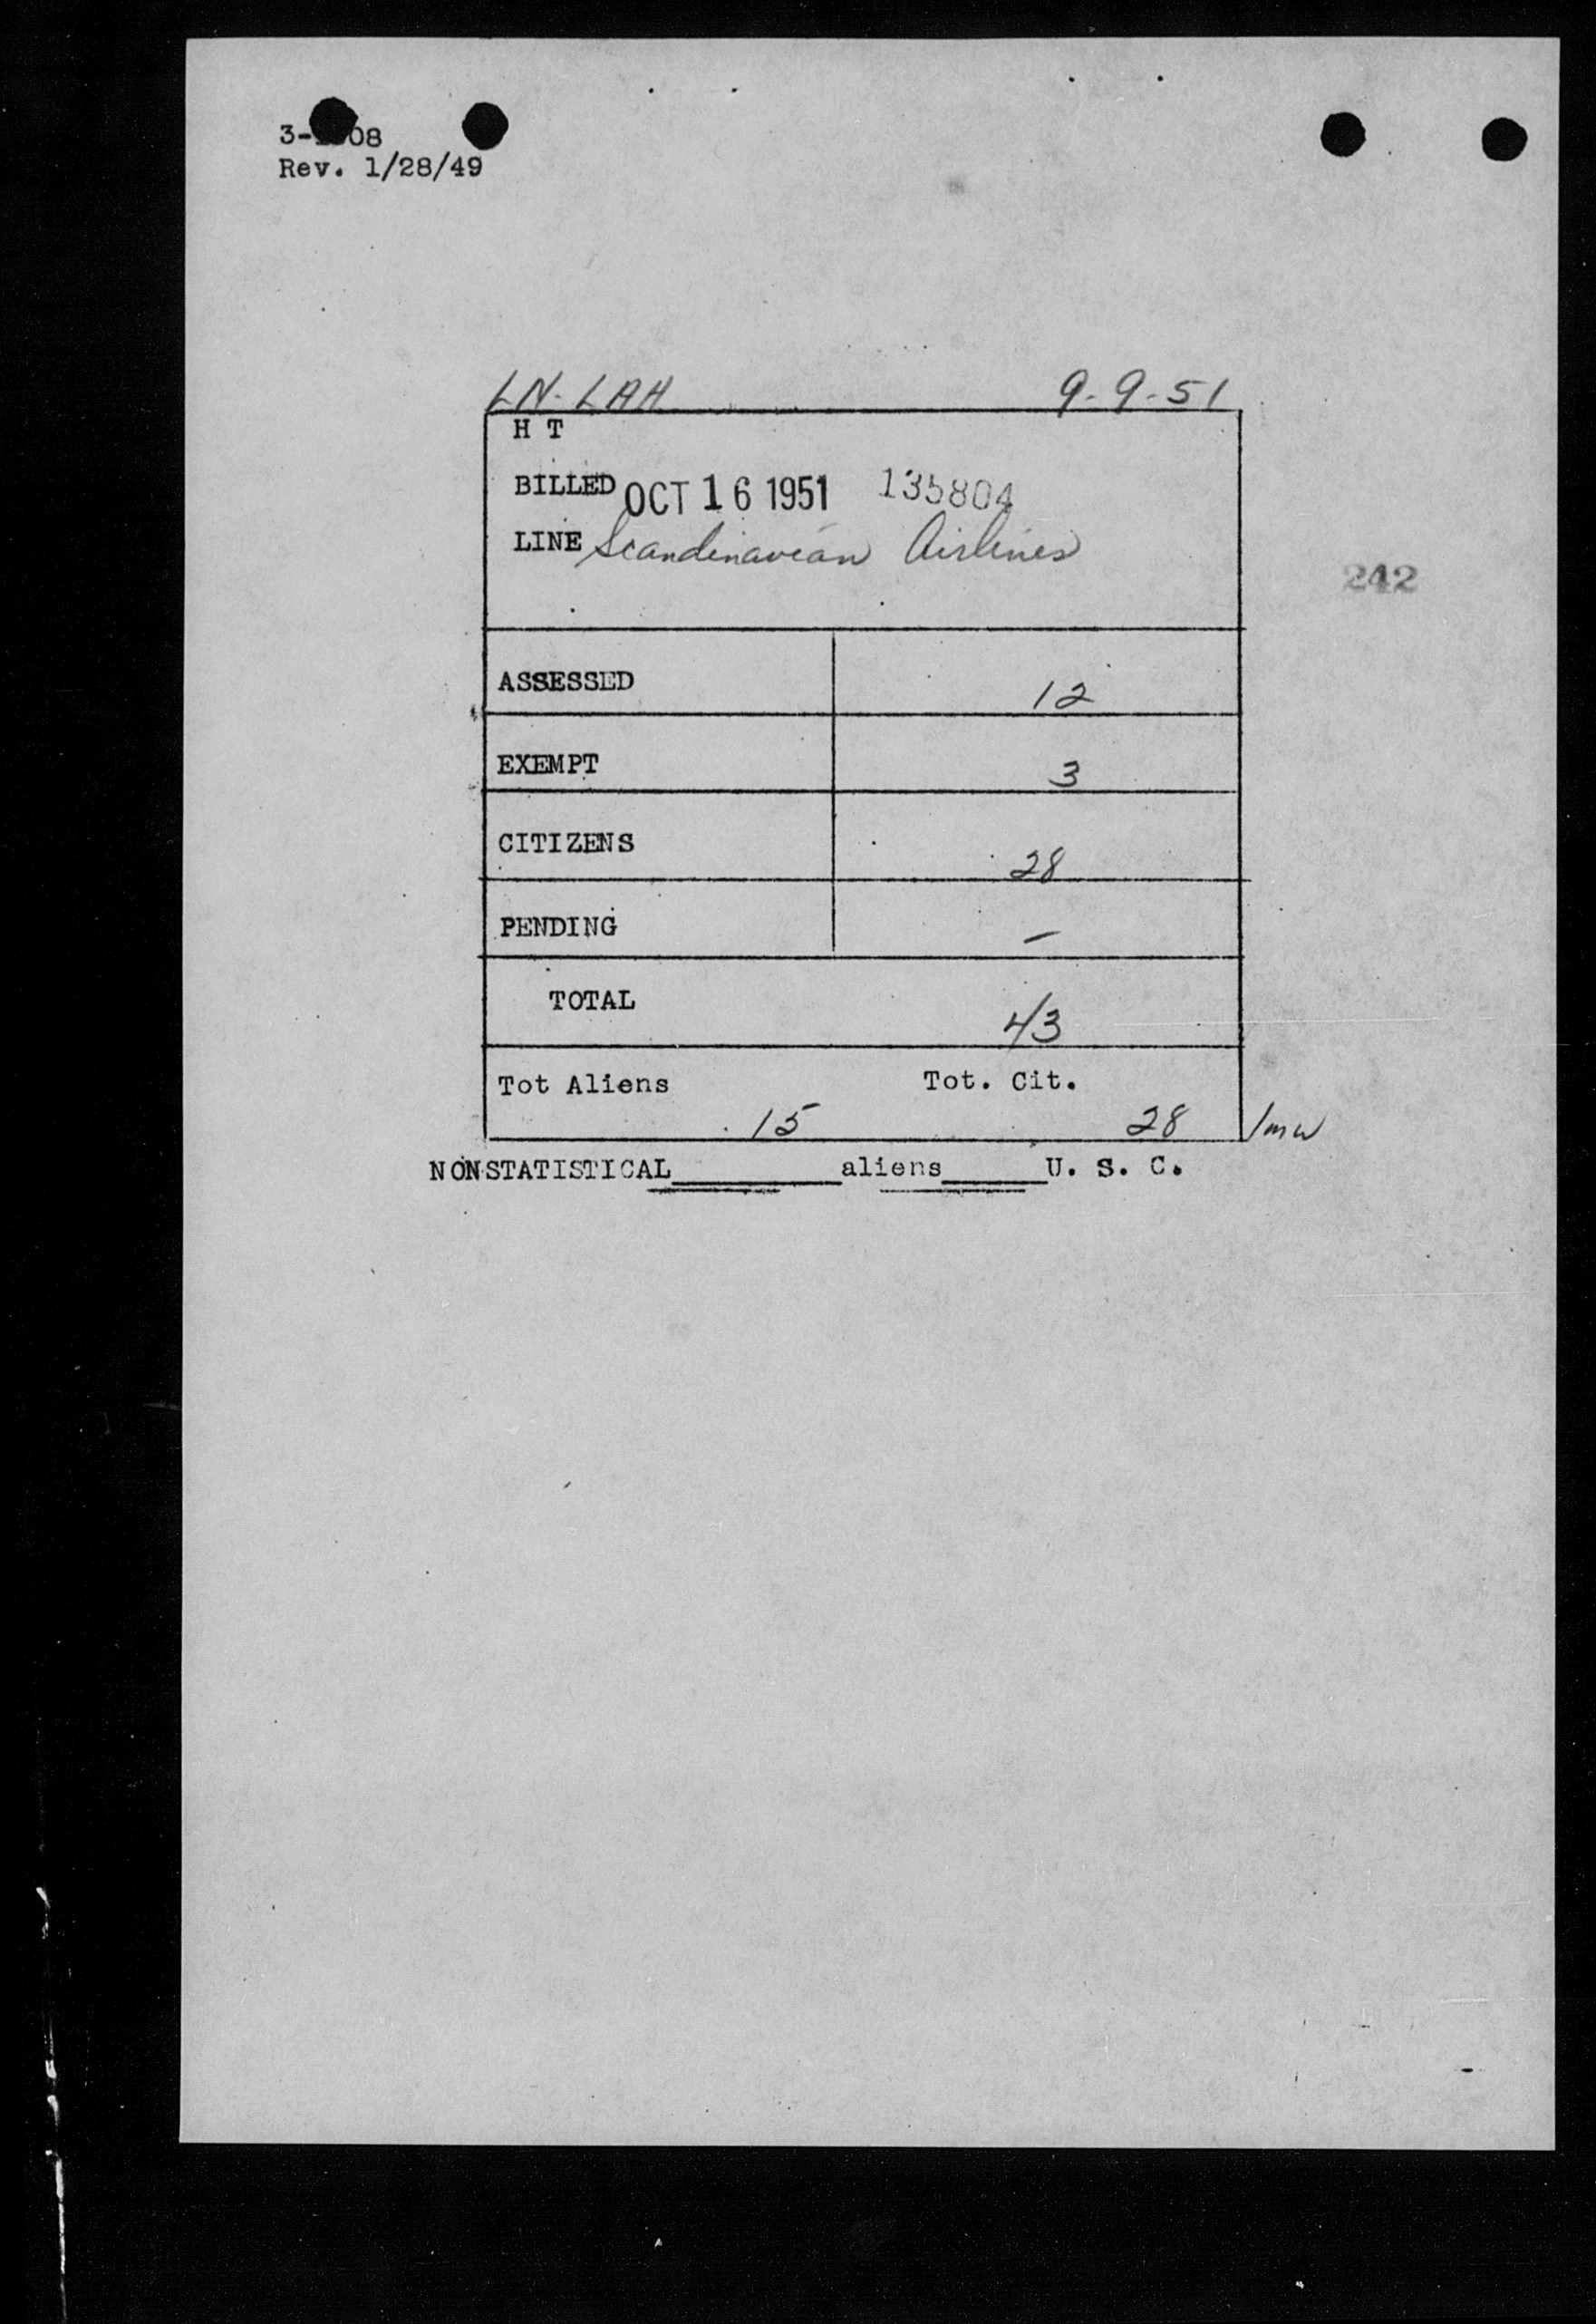 3-08
Rev. 1/28/49
LN-LAH 9-9-51
H T
BILLED OCT 16 1951 135804
LINE Scandinavian Airlines
242
ASSESSED 12
EXEMPT 3
CITIZENS 28
PENDING –
TOTAL 43
Tot Aliens Tot. Cit.
15 28 /mw
NONSTATISTICAL______aliens______U. S. C.